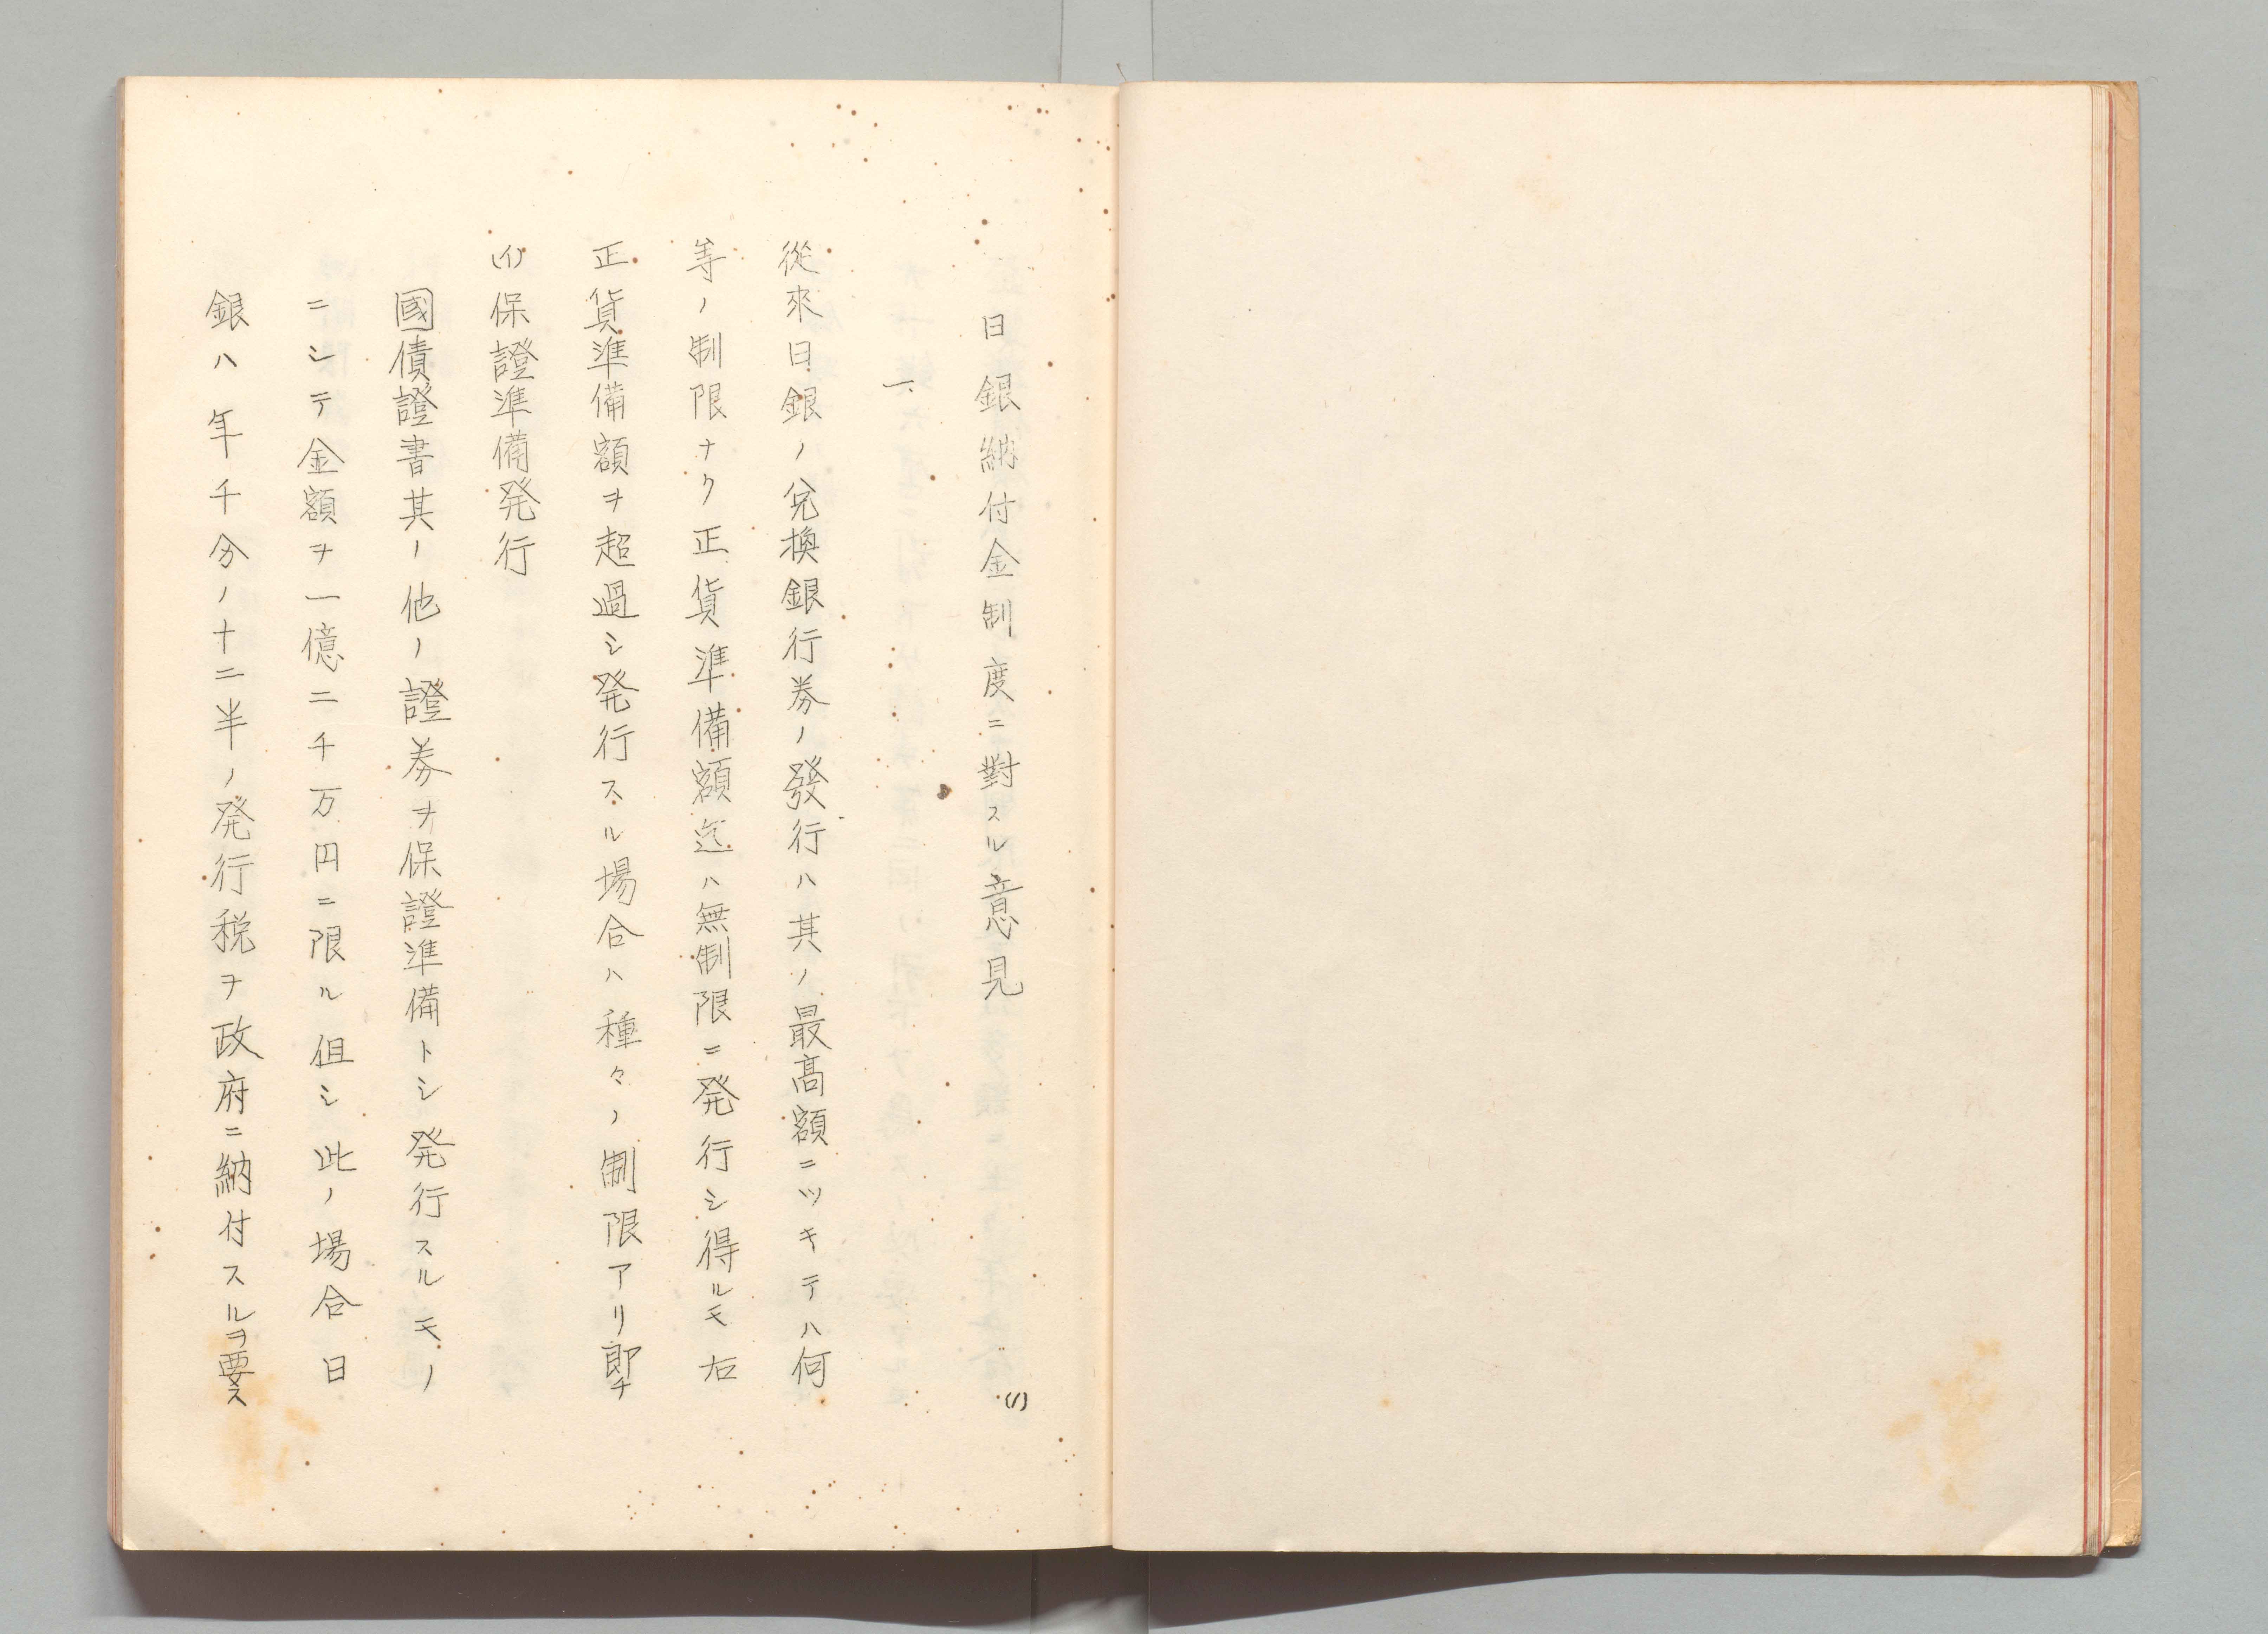 日銀納付金制度ニ對スル意見
(1)
一、
從來日銀ノ兌換銀行券ノ發行ハ其ノ最高額ニツキテハ何
等ノ制限ナク正貨準備額迄ハ無制限ニ発行シ得ルモ右
正貨準備額ヲ超過シ発行スル場合ハ種々ノ制限アリ即チ
(イ)保證準備発行
國債證書其ノ他ノ證券ヲ保證準備トシ発行スルモノ
ニシテ金額ヲ一億二千万円ニ限ル但シ此ノ場合日
銀ハ年千分ノ十二半ノ発行税ヲ政府ニ納付スルヲ要ス